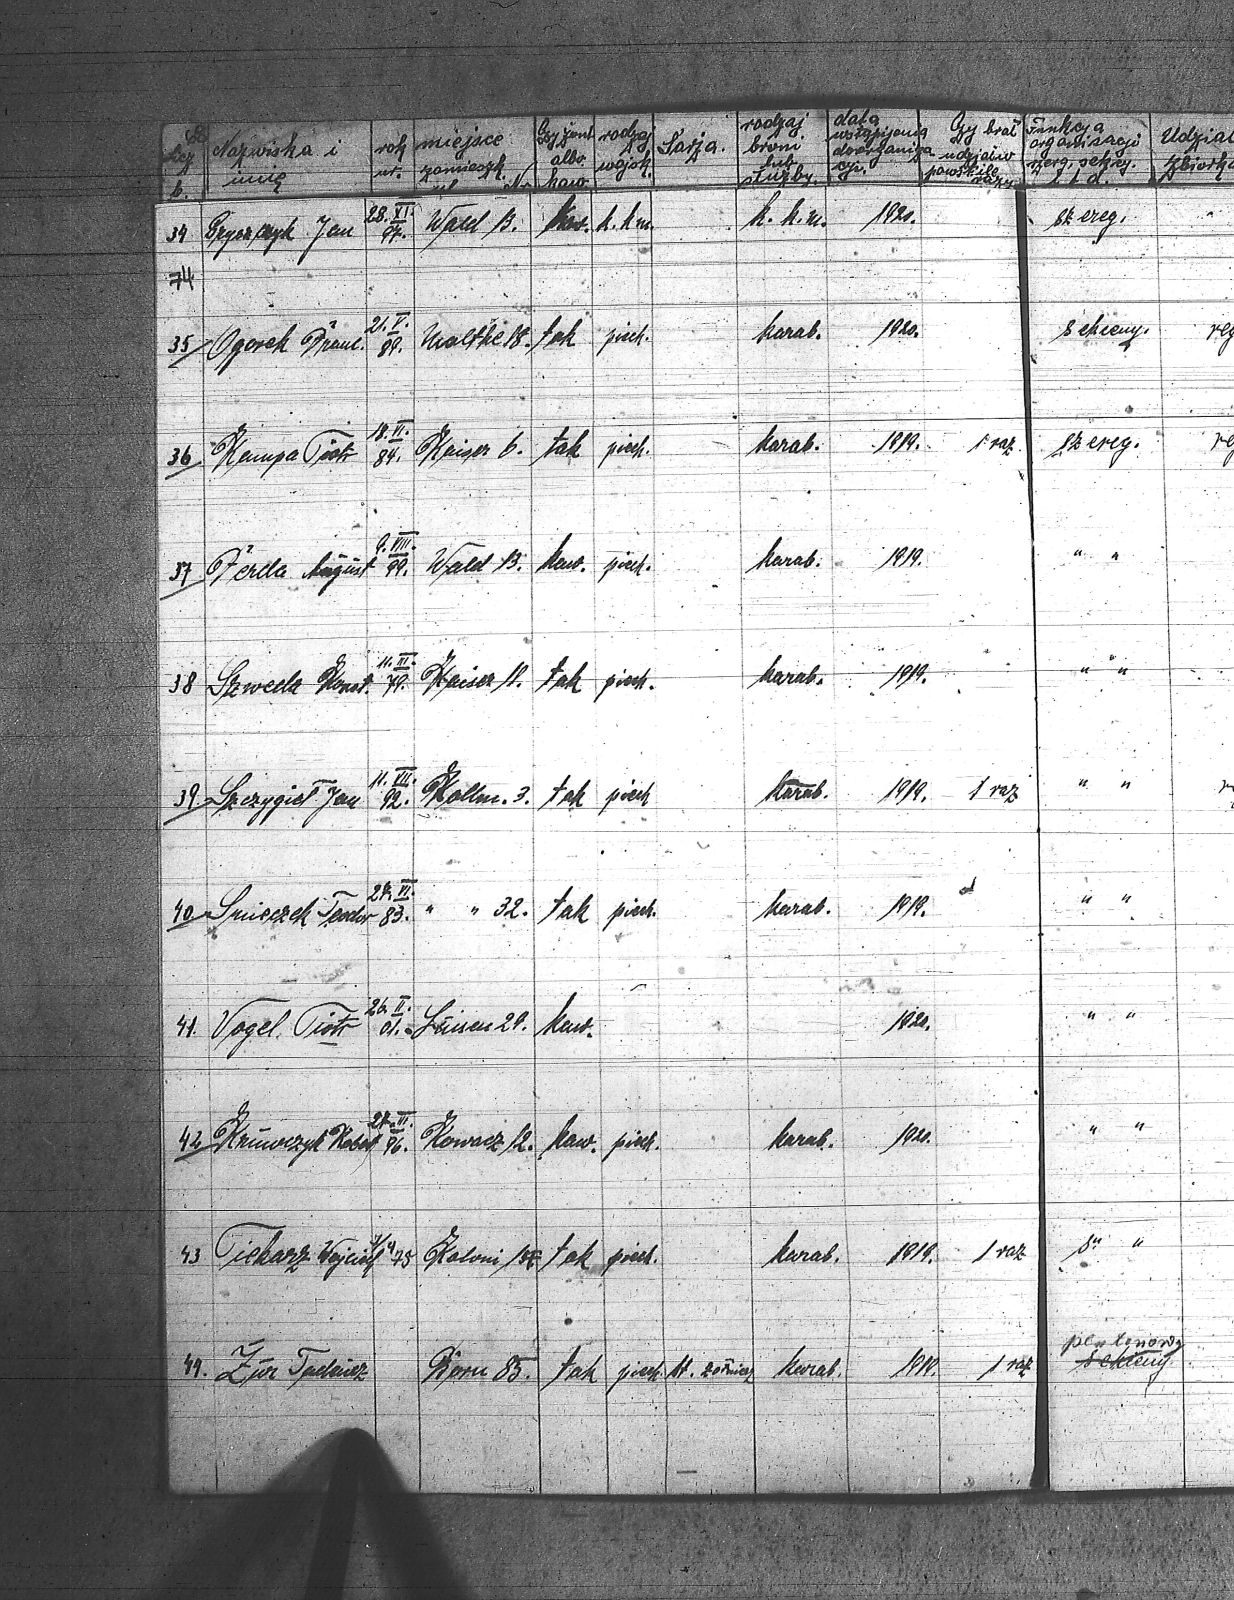 Nazwiska i imię rok ur. miejsce zamieszk. Czy żonat albo kaw. rodzaj wojsk. Sarża. rodzaj broni lub służby. data wstąpienia do organizacji Czy brał udział w Funkcja organizacji Udział
34 Jan 28.XI. 97. Wald 13. kaw. k.k.m. k.k.m. 1920. szereg.
74
35 Ogorek Franc. 21.V. 89. Moltke 18. tak piech. karab. 1920. sekcyny. reg
36 Kempa Piotr 18.VI. 84. Kaiser 6. tak piech. karab. 1919. 1 raz szereg. reg
37 Ferda August 9.VIII. 99. Wald 13. kaw. piech. karab. 1919. " "
38 Szweda Konst. 11.III. 79. Kaiser 11. tak piech. karab. 1919. " "
39 Szczygieł Jan 11.VII. 92. Kollm. 3. tak piech karab. 1919. 1 raz " "
40 Smieczek Teodor 27.VI. 83. " " 32. tak piech. karab. 1919. " "
41. Vogel. Piotr 26.II. 01. Luisen 29. kaw. 1920. " "
42 Kruwczyk Robert 27.III. 96. Kowacz 12. kaw. piech. karab. 1920. " "
43 Piekarz Wojciech 75 Koloni tak piech. karab. 1919. 1 raz " "
44. Żur Tadeusz Dorn 85. tak piech. st. żołnierz karab. 1919. 1 raz plutonowy sekcyny